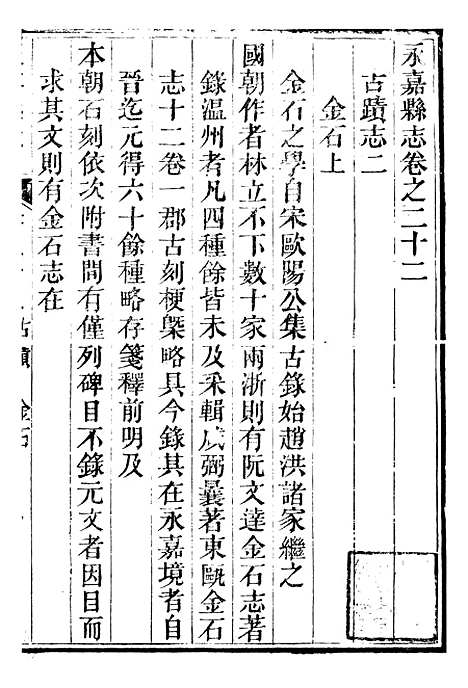 永嘉縣志卷之二十二
古蹟志二
金石上
金石之學自宋歐陽公集古錄始趙洪諸家繼之
國朝作者林立不下數十家兩浙則有阮文達金石志著
錄温州者凡四種餘皆未及采輯戚弼曩著東甌金石
志十二卷一郡古刻梗槩略具今錄其在永嘉境者自
晉迄元得六十餘種略存箋釋前明及
本朝石刻依次附書間有僅列碑目不錄元文者因目而
求其文則有金石志在
古蹟 金石